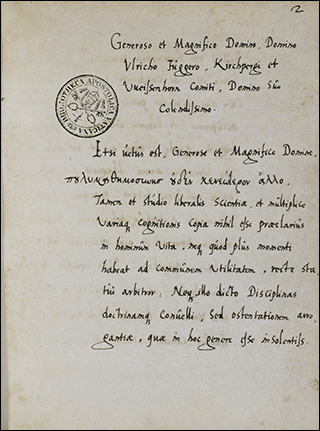 2
Generoso et Magnifico Domino, Domino
Vlricho Fuggero, Kirchpergi et
Vueissenhorn Comiti, Domino Suo
Colendissimo.
BIBLIOTHECA APOSTOLICA VATICANA
Etsi uetus est, Generose et Magnifice Domine,
οὐδεν κενεώτερον ἄλλο.
Tamen et studio liberalis Scientiæ, et multiplice
Variaq cognitionis copia nihil esse præclarius
in hominum Vita, neq quod plus momenti
habeat ad communem Utilitatem, recte sta-
tui arbitror. Neq illo dicto Disciplinas
doctrinamq Conuelli, Sed ostentationem arro-
gantiæ, quæ in hoc genere esse insolentiss.